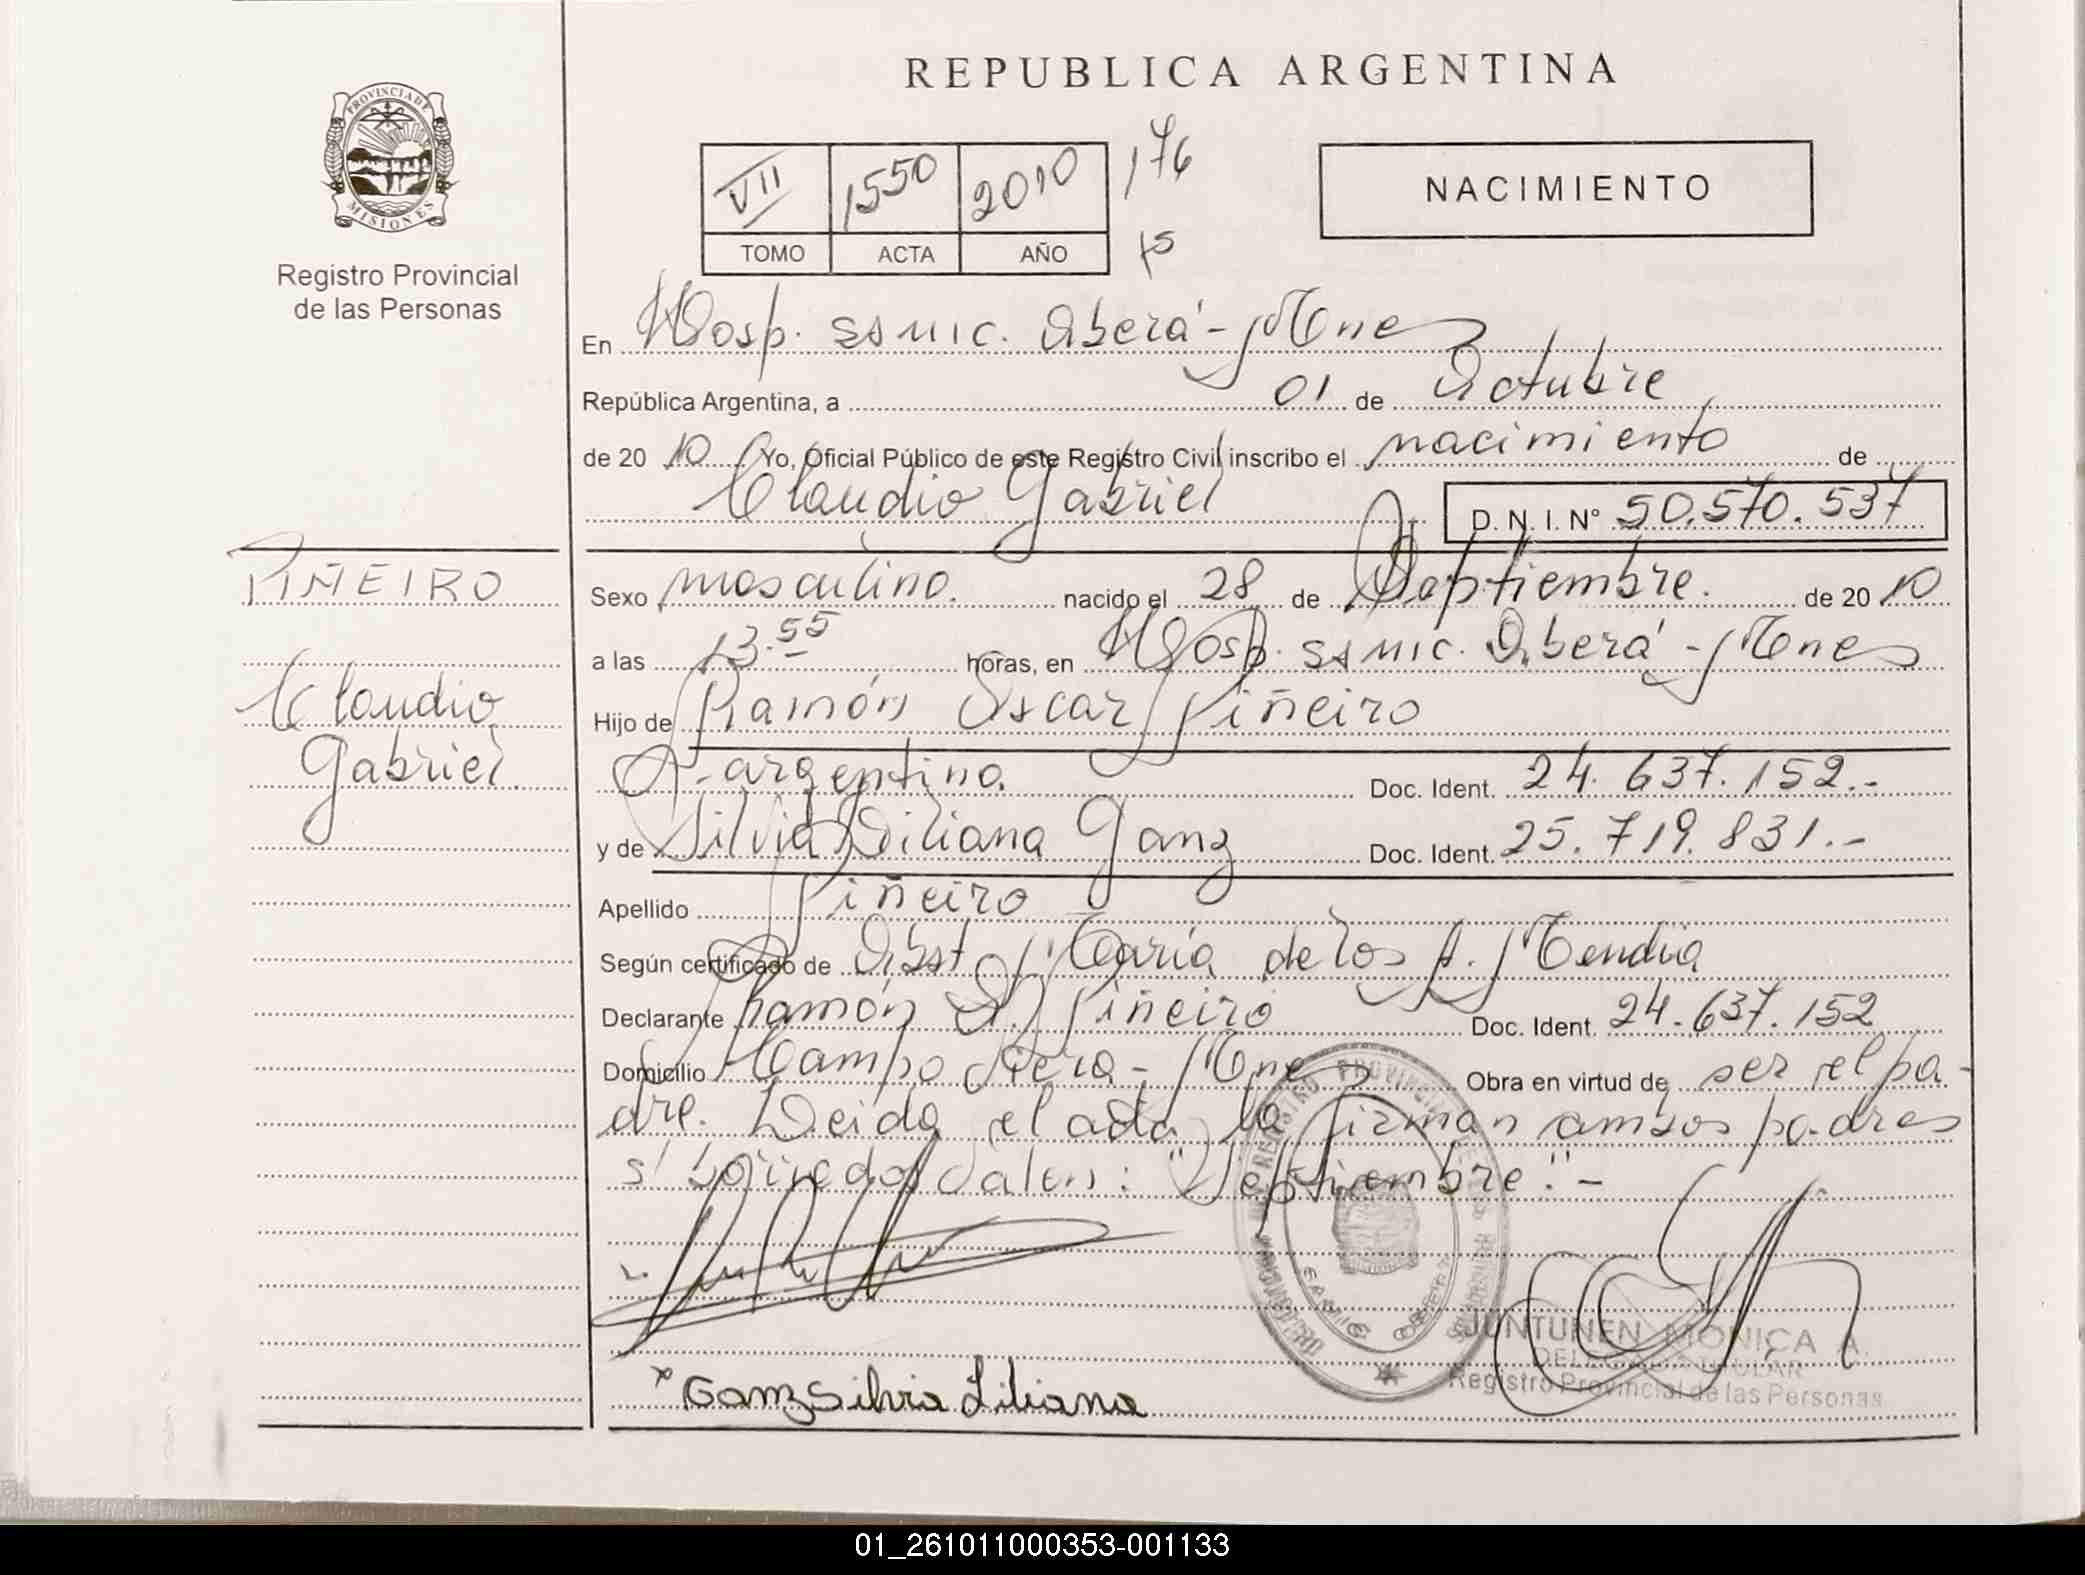 REPUBLICA ARGENTINA
PROVINCIA DE
MISIONES
Registro Provincial
de las Personas
VII 1550 2010 176
TOMO ACTA AÑO 75
NACIMIENTO
En Hosp. SAMIC. Oberá - Mnes
República Argentina, a 01 de Octubre
de 20 10 Yo, Oficial Público de este Registro Civil inscribo el nacimiento de
Claudio Gabriel D. N. I. N° 50.570.537
PIÑEIRO
Claudio
Gabriel.
Sexo masculino. nacido el 28 de Septiembre. de 20 10
a las 13.55 horas, en Hosp. SAMIC. Oberá - Mnes
Hijo de Ramón Oscar Piñeiro
argentino. Doc. Ident. 24.637.152.-
y de Silvia Liliana Ganz Doc. Ident. 25.719.831.-
Apellido Piñeiro
Según certificado de Obst. María de los A. Mendia
Declarante Ramón O. Piñeiro Doc. Ident. 24.637.152
Domicilio Campo Viera - Mnes Obra en virtud de ser el pa-
dre. Leida el acta la firman ambos padres
s/ borrado Valen: "Septiembre".-
JUNTUNEN MONICA A.
DELEGADA TITULAR
Registro Provincial de las Personas
x Ganz Silvia Liliana
01_261011000353-001133